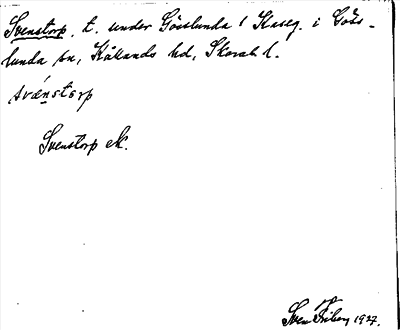 Svenstorp, t. under Gösslunda 1 Kaseg. i Göss-
lunda sn, Kållands hd, Skarab. l.
svänstorp
Svenstorp ek.
Sven Friberg 1927.